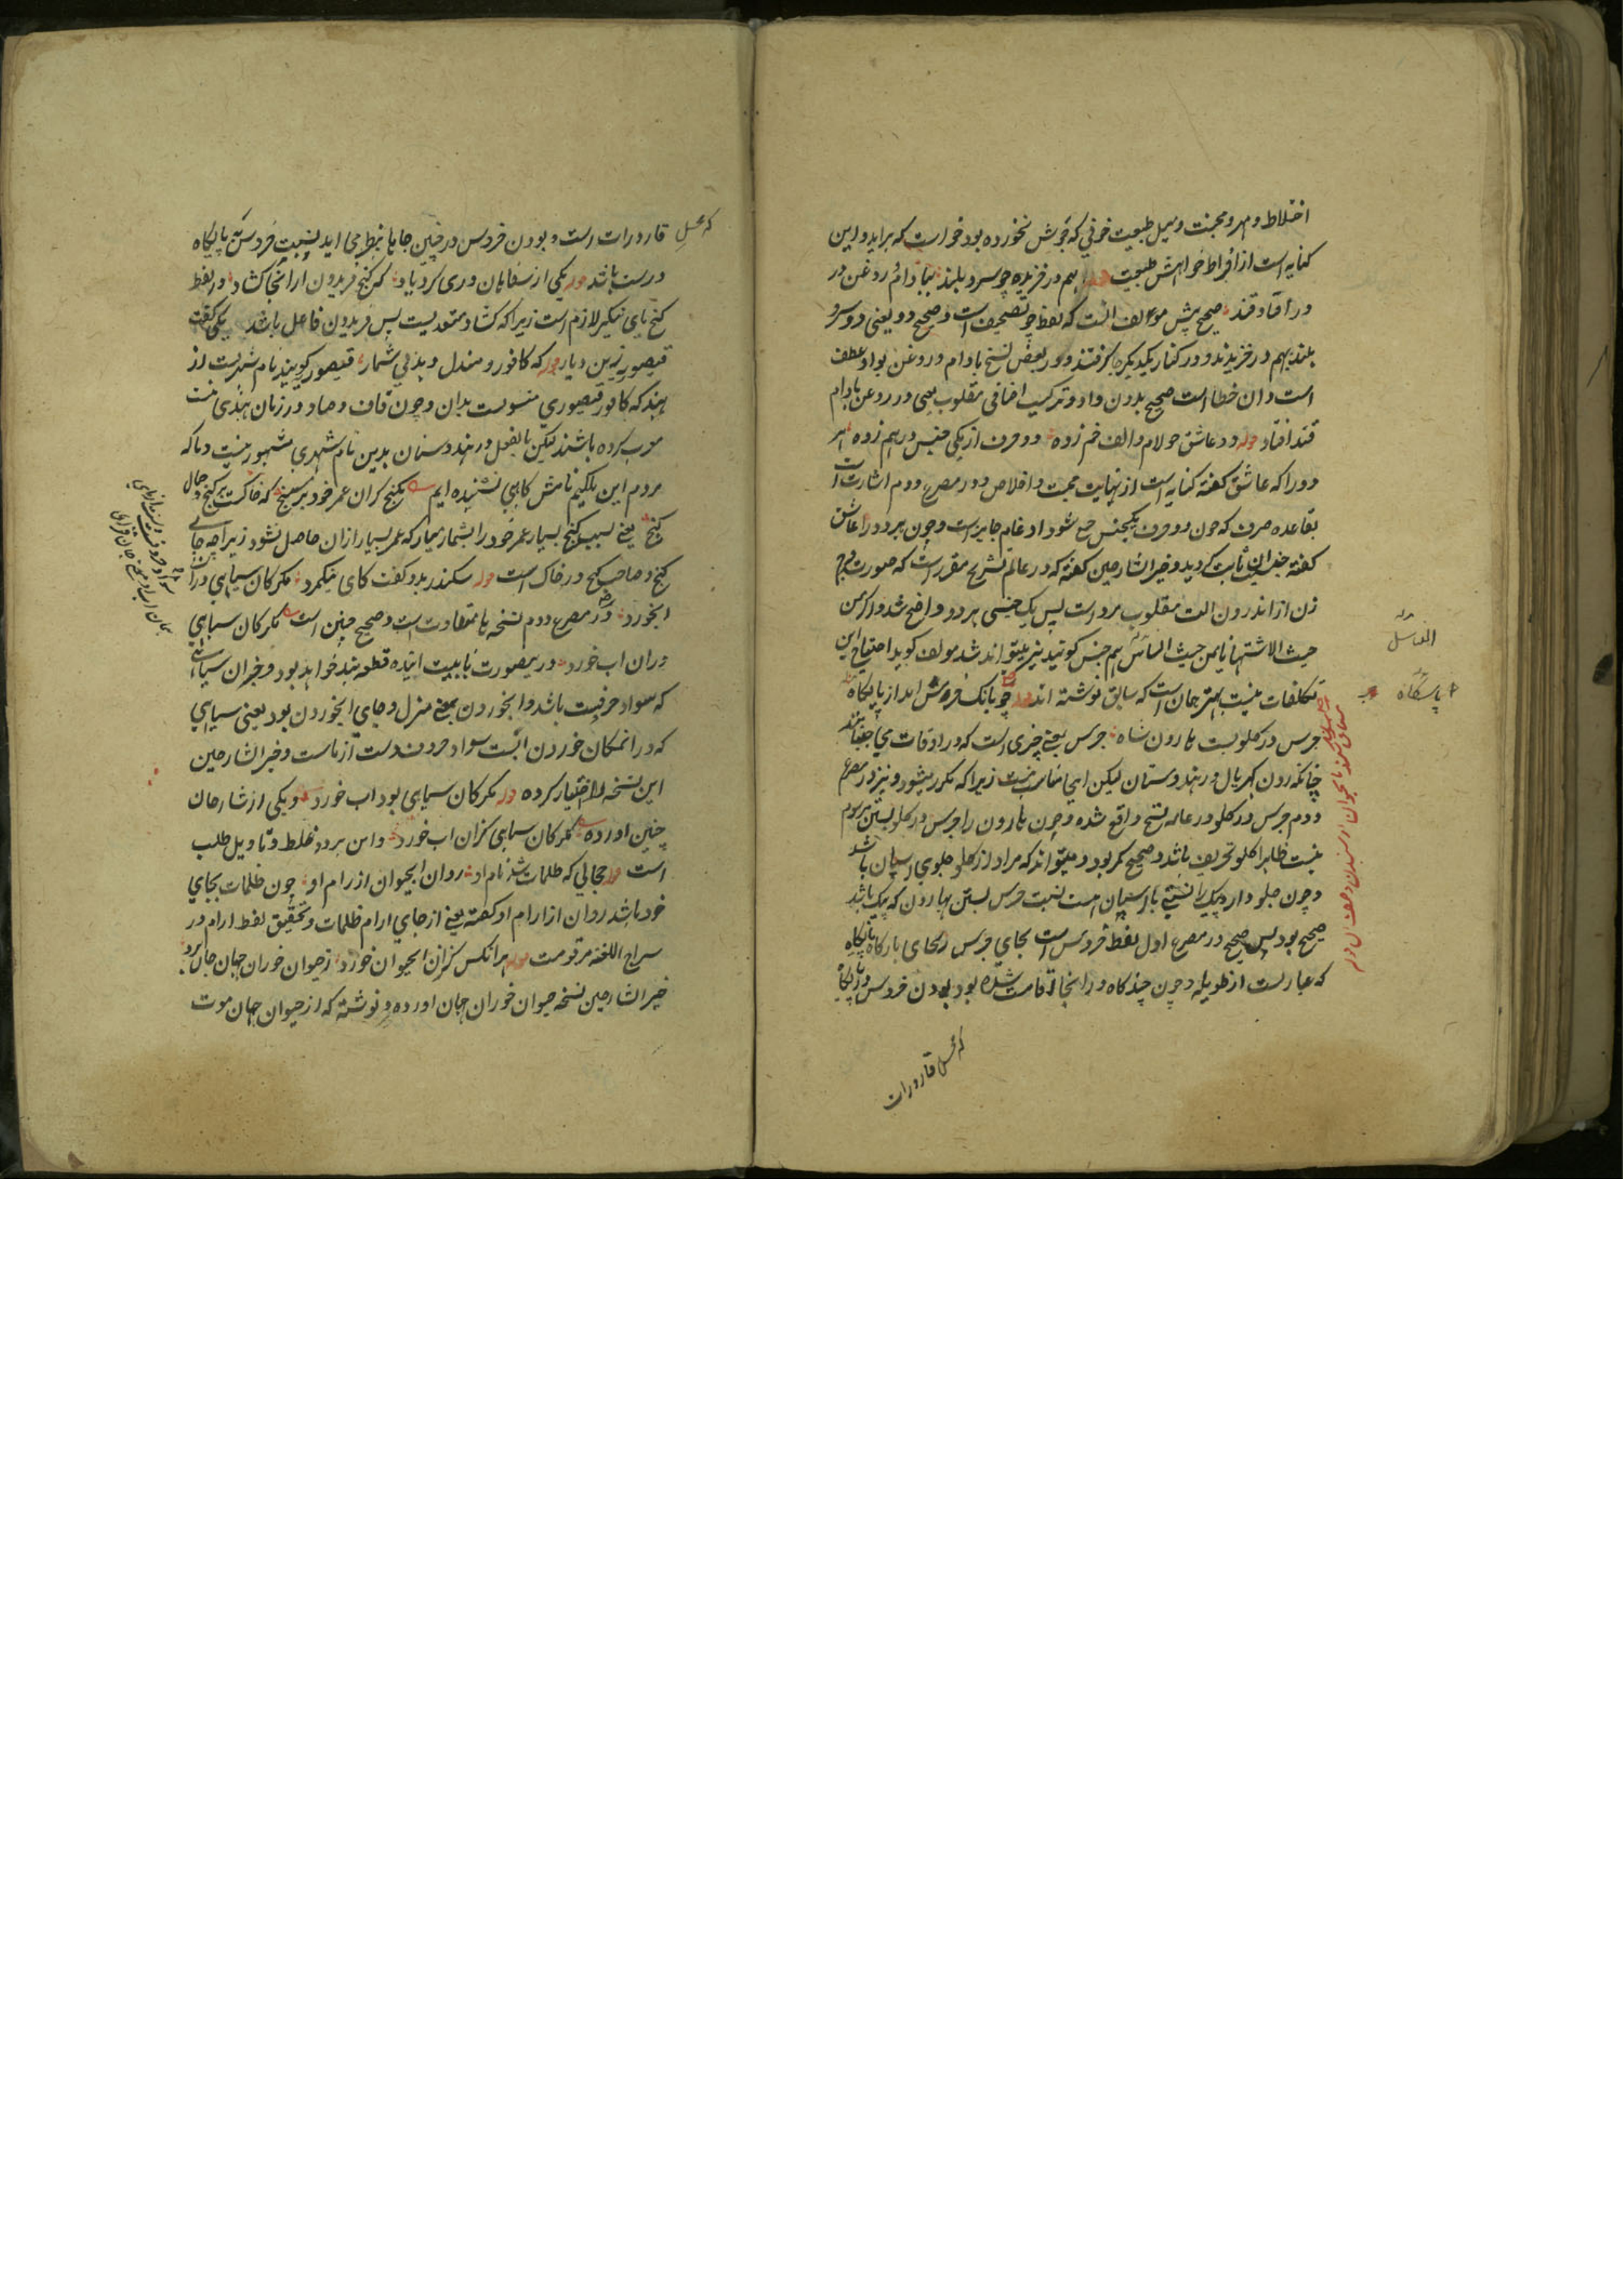 اختلاط و مهر و محبت و میل طبیعت خونی که جوش نخورده بود خواست که براید و این
کنایه است از افراط خواهش طبیعت قوله بهم در خزیده چو سرو بلند ببادام روغن در
در افتاد قند صحیح پیش مولف انست که لفظ چو تصحیف است و صحیح دو یعنی دو سرو
بلند بهم در خزیدند و در کنار یکدیگر گرفتند و در بعض نسخ بادام و روغن بواو عطف
است و ان خطا است صحیح بدون واو و ترکیب اضافی مقلوب یعنی در روغن بادام
قند افتاد قوله دو عاشق چو لام و الف خم زده دو حرف از یکی جنس درهم زده هر
دو را که عاشق گفته کنایه است از نهایت محبت و اخلاص و در مصرع دوم اشارت است
بقاعده صرف که چون دو حرف یکجنس جمع شود ادغام جایز است و چون هر دو را عاشق
گفته جنسیت ثابت گردید و خیر الشارحین گفته که در عالم تشریح مقرر است که صورت فرج
زن از اندرون الت مقلوب مرد است پس یک جنسی هر دو واضح شد و اگر من
حیث الاشتها یا من حیث الناس هم جنس گویند نیز میتواند شد مولف گوید احتیاج این
تکلفات نیست بهتر همان است که سابق نوشته اند قوله چو بانگ خروس امد از پایگاه
جرس در گلو بست هارون شاه جرس یعنی چیزی است که در اوقات می جنبانند
چنانکه زدن گهریال در هندوستان لیکن اینجا مناسب نیست زیرا که مکرر میشود و نیز در مصرع
دوم جرس در گلو در عامه نسخ واقع شده و چون هارون را جرس در گلو بستن مرسوم
نیست ظاهرا گلو تحریف باشد و صحیح کمر بود و میتواند که مراد از گلو جلوی اسپان باشد
و چون جلودار و پیک را نسبتی با اسپان هست نسبت جرس بستن بهارون که پیک باشد
صحیح بود پس صحیح در مصرع اول لفظ خروس است بجای جرس و بجای بارگاه پایگاه
که عبارت از طویله و چون چند گاه در انجا اقامت شده بود بودن خروس در پایگاه
که محل قارورات
قوله
الفاسل
پایگاه
که محل قارورات است و بودن خروس در چنین جاها بنظر می اید نسبت خروس به پایگاه
درست باشد قوله یکی از سقایان وری کرد یاد کزین گنج فریدون در انجا گشاد و لفظ
گنج یای تنکیر لازم است زیرا که گشاد متعدیست پس فریدون فاعل باشد یکی گفت
قیصور زین دیار قوله که کافور و صندل دهد بی شمار قیصور گویند نام شهریست از
هند که کافور قیصوری منسوبست بدان و چون قاف و صاد در زبان هندی نیست
معرب کرده باشند لیکن بالفعل در هندوستان بدین نام شهری مشهور نیست و ما که
مردم این ملکیم نامش گاهی نشنیده ایم بگنج گران عمر خود بر مسنج که خاکست گنج و حال
گنج یعنی بسبب گنج بسیار عمر خود را بشمار میار که عمر بسیار ازان حاصل نشود زیرا چه جای
گنج و صاحب گنج در خاک است قوله سکندر بدو گفت کای نیکمرد مگر کان سیاهی دران
ابخورد در مصرع دوم نسخه ها متفاوت است و صحیح چنین است مگر کان سیاهی
دران اب خورد درینصورت با بیت اینده قطعه بند خواهد بود و جزان سیاهی
که سواد حرفیت باشد و ابخوردن بمعنی منزل و جای ابخوردن بود یعنی سیاهی
که در انمکان خوردن ابست سواد حروفست از ماست و خیر الشارحین
این نسخه را اختیار کرده قوله مگر کان سیاهی بود اب خورد و یکی از شارحان
چنین اورده مگر کان سیاهی کزان اب خورد و این هر دو غلط و تاویل طلب
است قوله حجابی که ظلمات شد نام او روان ابحیوان از رام او چون ظلمات بجای
خود باشد روان از ارام او گفته یعنی از جای ارام ظلمات و تحقیق لفظ ارام در
سراج اللغة مرقومست قوله هر انکس کزان ابحیوان خورد ز حیوان خوران جهان جان برد
خیر الشارحین نسخه حیوان خوران جهان اورده و نوشته که از حیوان جهان موت